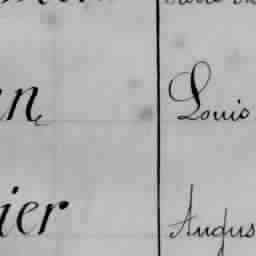 en Louis
ier Augus